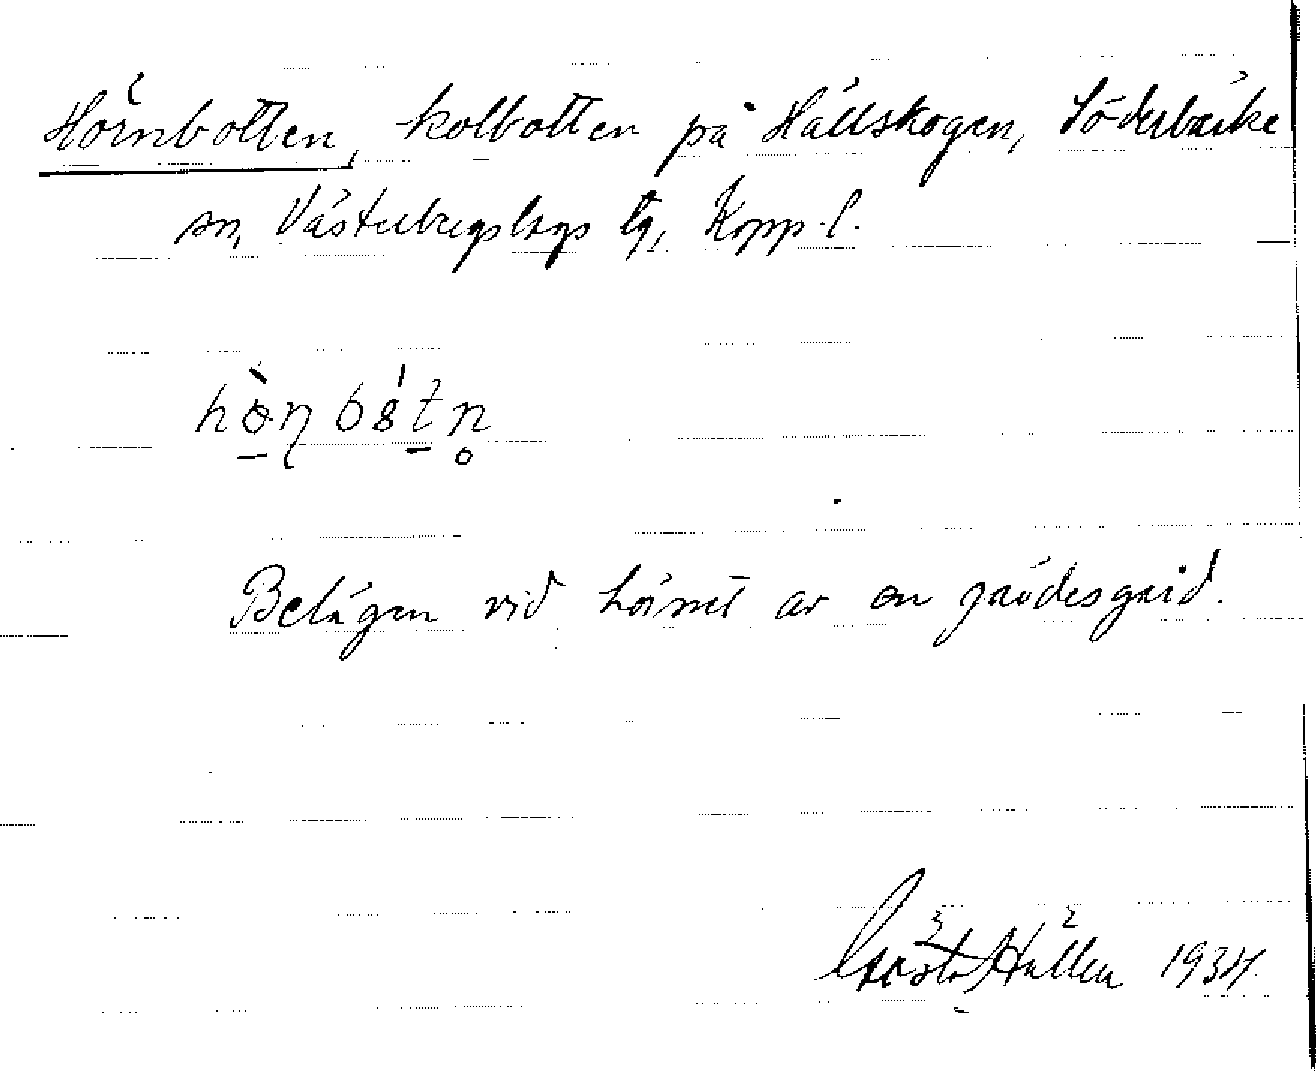 Hörnbotten, kolbotten på Hällskogen, Söderbärke
sn, Västerbergslags tg, Kopp. l.
Belägen vid hörnet av en gärdesgård.
Gösta Hällen 1934.